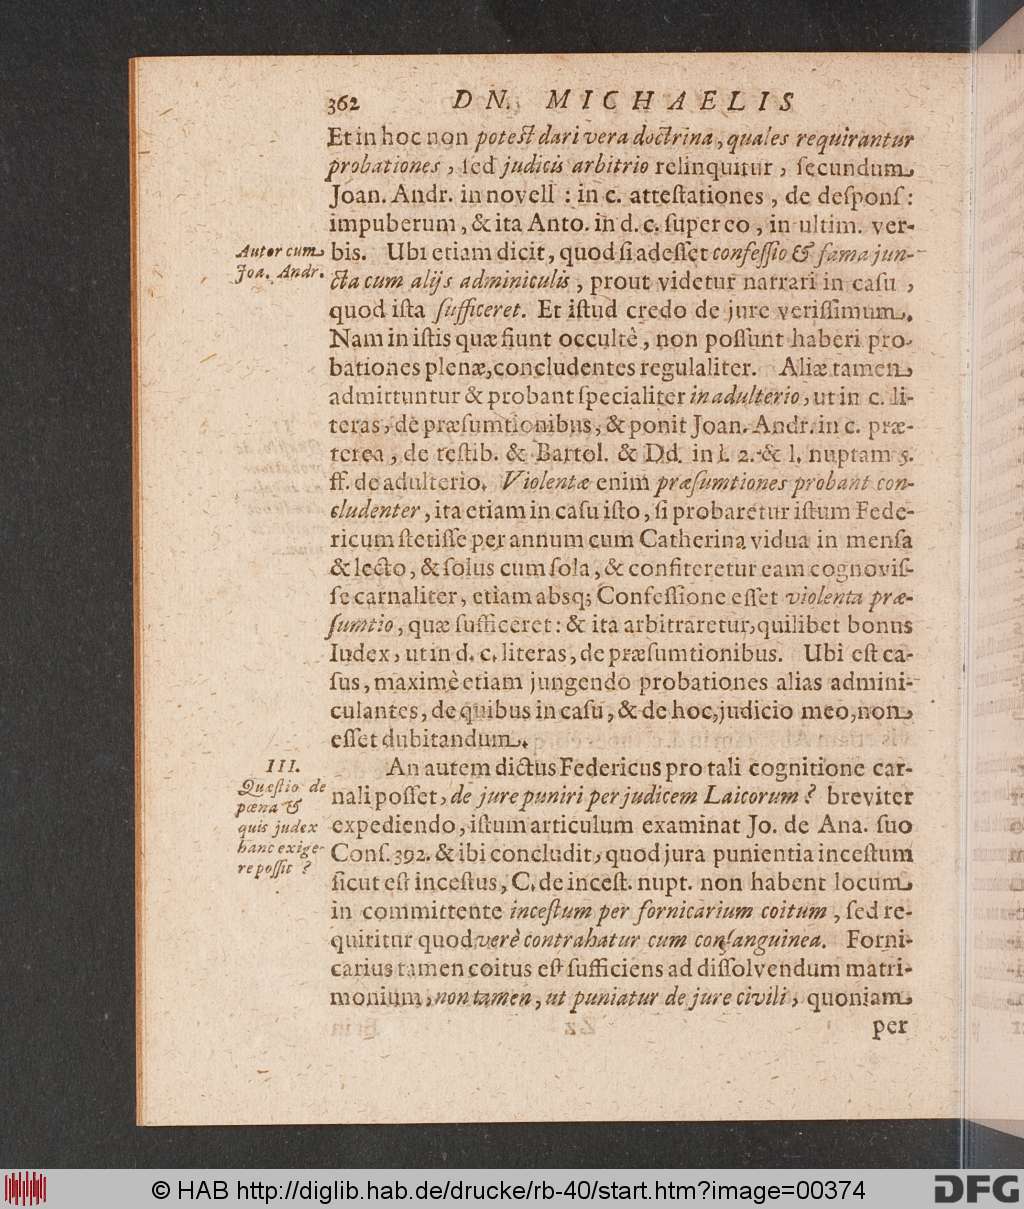 362 DN. MICHAELIS
Et in hoc non potest dari vera doctrina, quales requirantur
probationes, sed judicis arbitrio relinquitur, secundum
Joan. Andr. in novell: in c. attestationes, de despons:
impuberum, & ita Anto. in d. c. super eo, in ultim. ver-
Autor cum
Joa. Andr.
bis. Ubi etiam dicit, quod si adesset confessio & fama jun-
cta cum alijs adminiculis, prout videtur narrari in casu,
quod ista sufficeret. Et istud credo de jure verissimum.
Nam in istis quæ fiunt occultè, non possunt haberi pro-
bationes plenæ, concludentes regulaliter. Aliæ tamen
admittuntur & probant specialiter in adulterio, ut in c. li-
teras, de præsumtionibus, & ponit Joan. Andr. in c. præ-
terea, de testib. & Bartol. & Dd. in l. 2. & l. nuptam 5.
ff. de adulterio. Violentæ enim præsumtiones probant con-
cludenter, ita etiam in casu isto, si probaretur istum Fede-
ricum stetisse per annum cum Catherina vidua in mensa
& lecto, & solus cum sola, & confiteretur eam cognovis-
se carnaliter, etiam absq; Confessione esset violenta præ-
sumtio, quæ sufficeret: & ita arbitraretur, quilibet bonus
Iudex, ut in d. c. literas, de præsumtionibus. Ubi est ca-
sus, maximè etiam jungendo probationes alias admini-
culantes, de quibus in casu, & de hoc, judicio meo, non
esset dubitandum.
III.
Quæstio de
pœna &
quis judex
hanc exige-
re possit?
An autem dictus Federicus pro tali cognitione car-
nali posset, de jure puniri per judicem Laicorum? breviter
expediendo, istum articulum examinat Jo. de Ana. suo
Cons. 392. & ibi concludit, quod jura punientia incestum
sicut est incestus, C. de incest. nupt. non habent locum
in committente incestum per fornicarium coitum, sed re-
quiritur quod verè contrahatur cum consanguinea. Forni-
carius tamen coitus est sufficiens ad dissolvendum matri-
monium, non tamen, ut puniatur de jure civili, quoniam
per
© HAB http://diglib.hab.de/drucke/rb-40/start.htm?image=00374
DFG